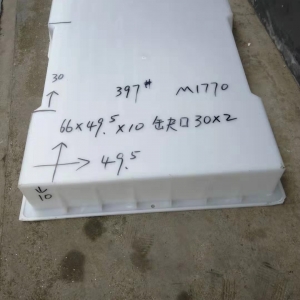 30
397# M1770
66×49.5×10 缺口30×2
49.5
10